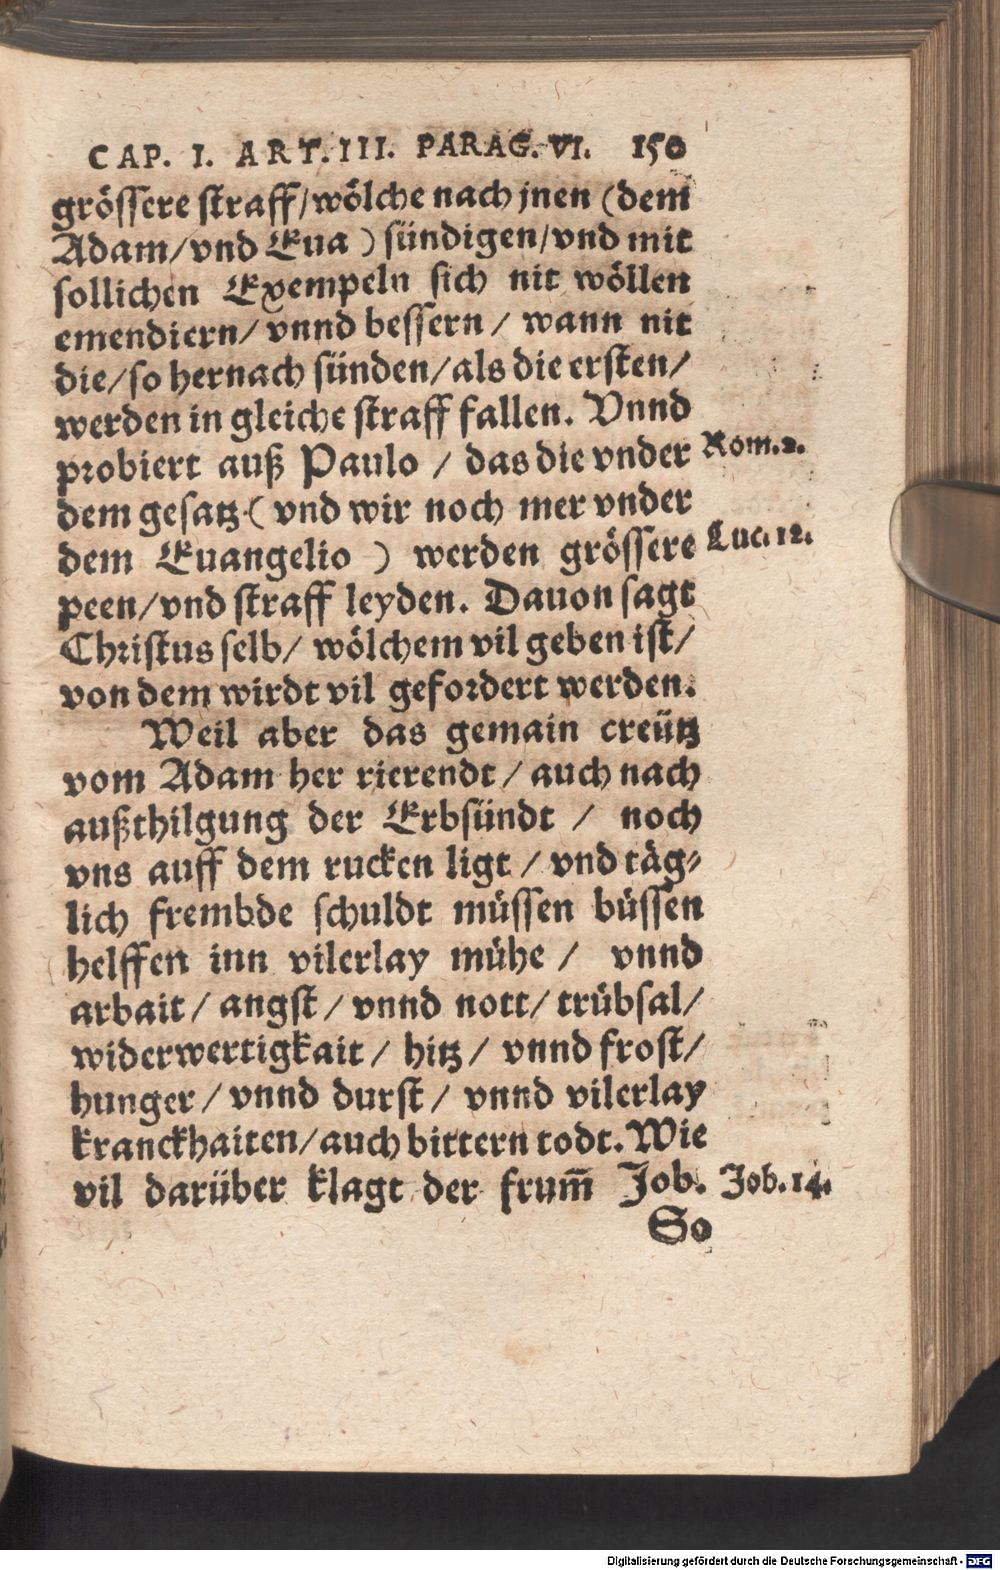 CAP. I. ART. III. PARAG. VI. 150
grössere straff/wölche nach jnen (dem
Adam/vnd Eua) sündigen/vnd mit
sollichen Exempeln sich nit wöllen
emendiern/ vnnd bessern/ wann nit
die/so hernach sünden/als die ersten/
werden in gleiche straff fallen. Vnnd
probiert auß Paulo / das die vnder Rom. 2.
dem gesatz (vnd wir noch mer vnder
dem Euangelio) werden grössere Luc. 12.
peen/vnd straff leyden. Dauon sagt
Christus selb/ wölchem vil geben ist/
von dem wirdt vil gefordert werden.
Weil aber das gemain creütz
vom Adam her rierendt/ auch nach
außthilgung der Erbsündt / noch
vns auff dem rucken ligt/ vnd täg-
lich frembde schuldt müssen büssen
helffen inn vilerlay mühe / vnnd
arbait/ angst/ vnnd nott/ trübsal/
widerwertigkait/ hitz/ vnnd frost/
hunger/ vnnd durst/ vnnd vilerlay
kranckhaiten/auch bittern todt. Wie
vil darüber klagt der frum̄ Job. Job. 14.
So
Digitalisierung gefördert durch die Deutsche Forschungsgemeinschaft - DFG